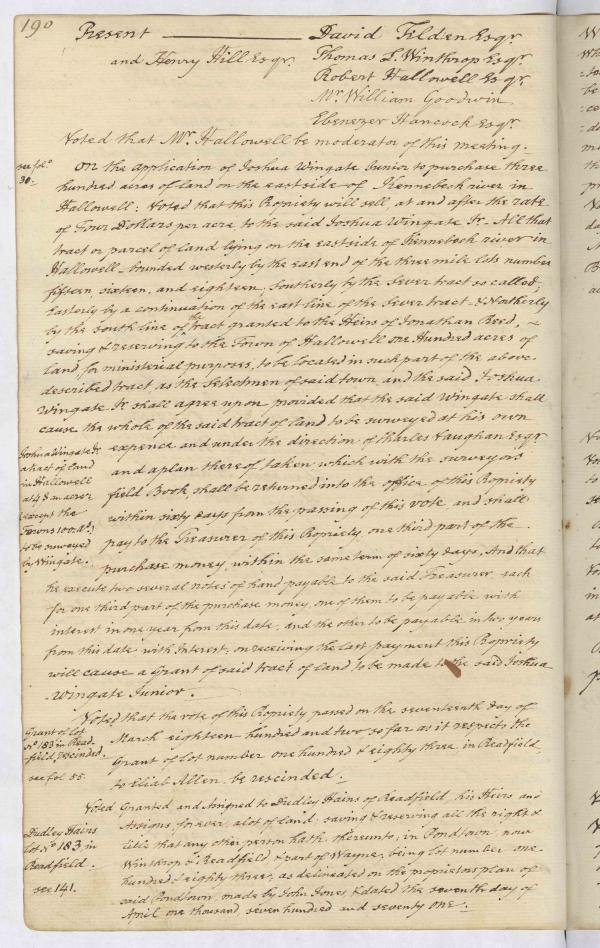 190
Present — David Tilden Esqr.
and Henry Hill Esqr. Thomas L. Winthrop Esqr.
Robert Hallowell Esqr.
Mr. William Goodwin
Ebenezer Hancock Esqr.
Voted that Mr. Hallowell be moderator of this meeting.
see fol.
30.
On the application of Joshua Wingate Junior to purchase three
hundred acres of land on the east side of Kennebeck river in
Hallowell; Voted that this Propriety will sell, at and after the rate
of Four Dollars per acre, to the said Joshua Wingate Jr. All that
tract or parcel of land lying on the east side of Kennebeck river in
Hallowell - bunded westerly by the east end of the three mile lots number
fifteen, sixteen, and eighteen, southerly by the sever tract so called;
Easterly by a continuation of the east line of the sever tract & Northerly
by the south line of the tract granted to the Heirs of Jonathan Reed,
saving & reserving to the Town of Hallowell one Hundred acres of
land, for ministerial purposes, to be located in such part of the above
described tract, as the Selectmen of said town, and the said Joshua
Wingate Jr. shall agree upon provided that the said Wingate shall
cause the whole of the said tract of land to be surveyed at his own
expence and under the direction of Charles Vaughan Esqr.
and a plan thereof taken, which with the surveyors
field Book, shall be returned into the office of this Propriety
within sixty days from the passing of this vote, and shall
pay to the Treasurer of this Propriety, one third part of the
purchase money, within the same term of sixty days, And that
he execute two several notes of hand payable to the said Treasurer, each
for one third part of the purchase money, one of them to be payable with
interest in one year from this date, and the other to be payable in two years
from this date with Interest, on receiving the last payment this Propriety
will cause a Grant of said tract of land to be made to the said Joshua
Wingate Junior.
Joshua Wingate Jr.
a tract of land
in Hallowell
at 4$ an acre
(except the
Towns 100 As)
to be surveyed
by Wingate.
Voted that the vote of this Propriety passed on the seventeenth day of
March eighteen hundred and two so far as it respects the
Grant of lot number one hundred & eighty three, in Readfield,
to Eliab Allen, be rescinded.
Grant of lot
No. 183 in Read-
field, rescinded.
see fol. 55.
Voted Granted and Assigned to Dudley Hains of Readfield, his Heirs and
Assigns, forever, a lot of land; saving & reserving all the right &
title that any other person hath thereunto, in Pondtown, now
Winthrop & Readfield & part of Wayne, being lot number one
hundred & eighty three, as delineated on the proprietors plan of
said Pondtown, made by John Jones, & dated the seventh day of
April one thousand, seven hundred and seventy one.
Dudley Hains
lot No. 183, in
Readfield.
see 141.